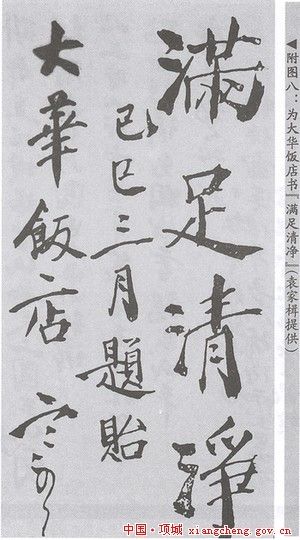 ◀附图八：为大华饭店书『满足清净』(袁家楫提供)
滿足清淨
己巳三月題貽
大華飯店
中国·项城 xiangcheng.gov.cn